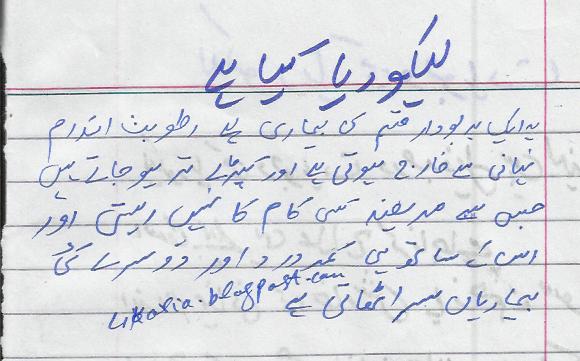 لیکوریا کیا ہے
یہ ایک بدبودار قسم کی بیماری ہے رطوبت اندرام
نہانی سے خارج ہوتی ہے اور کپڑے تر ہو جاتے ہیں
جس سے مریضہ کسی کام کا نہیں رہتی اور
اس کے ساتھ ہی کمر درد اور دوسرے کئی
بیماریاں سر اٹھاتی ہے
likoria.blogpast.com